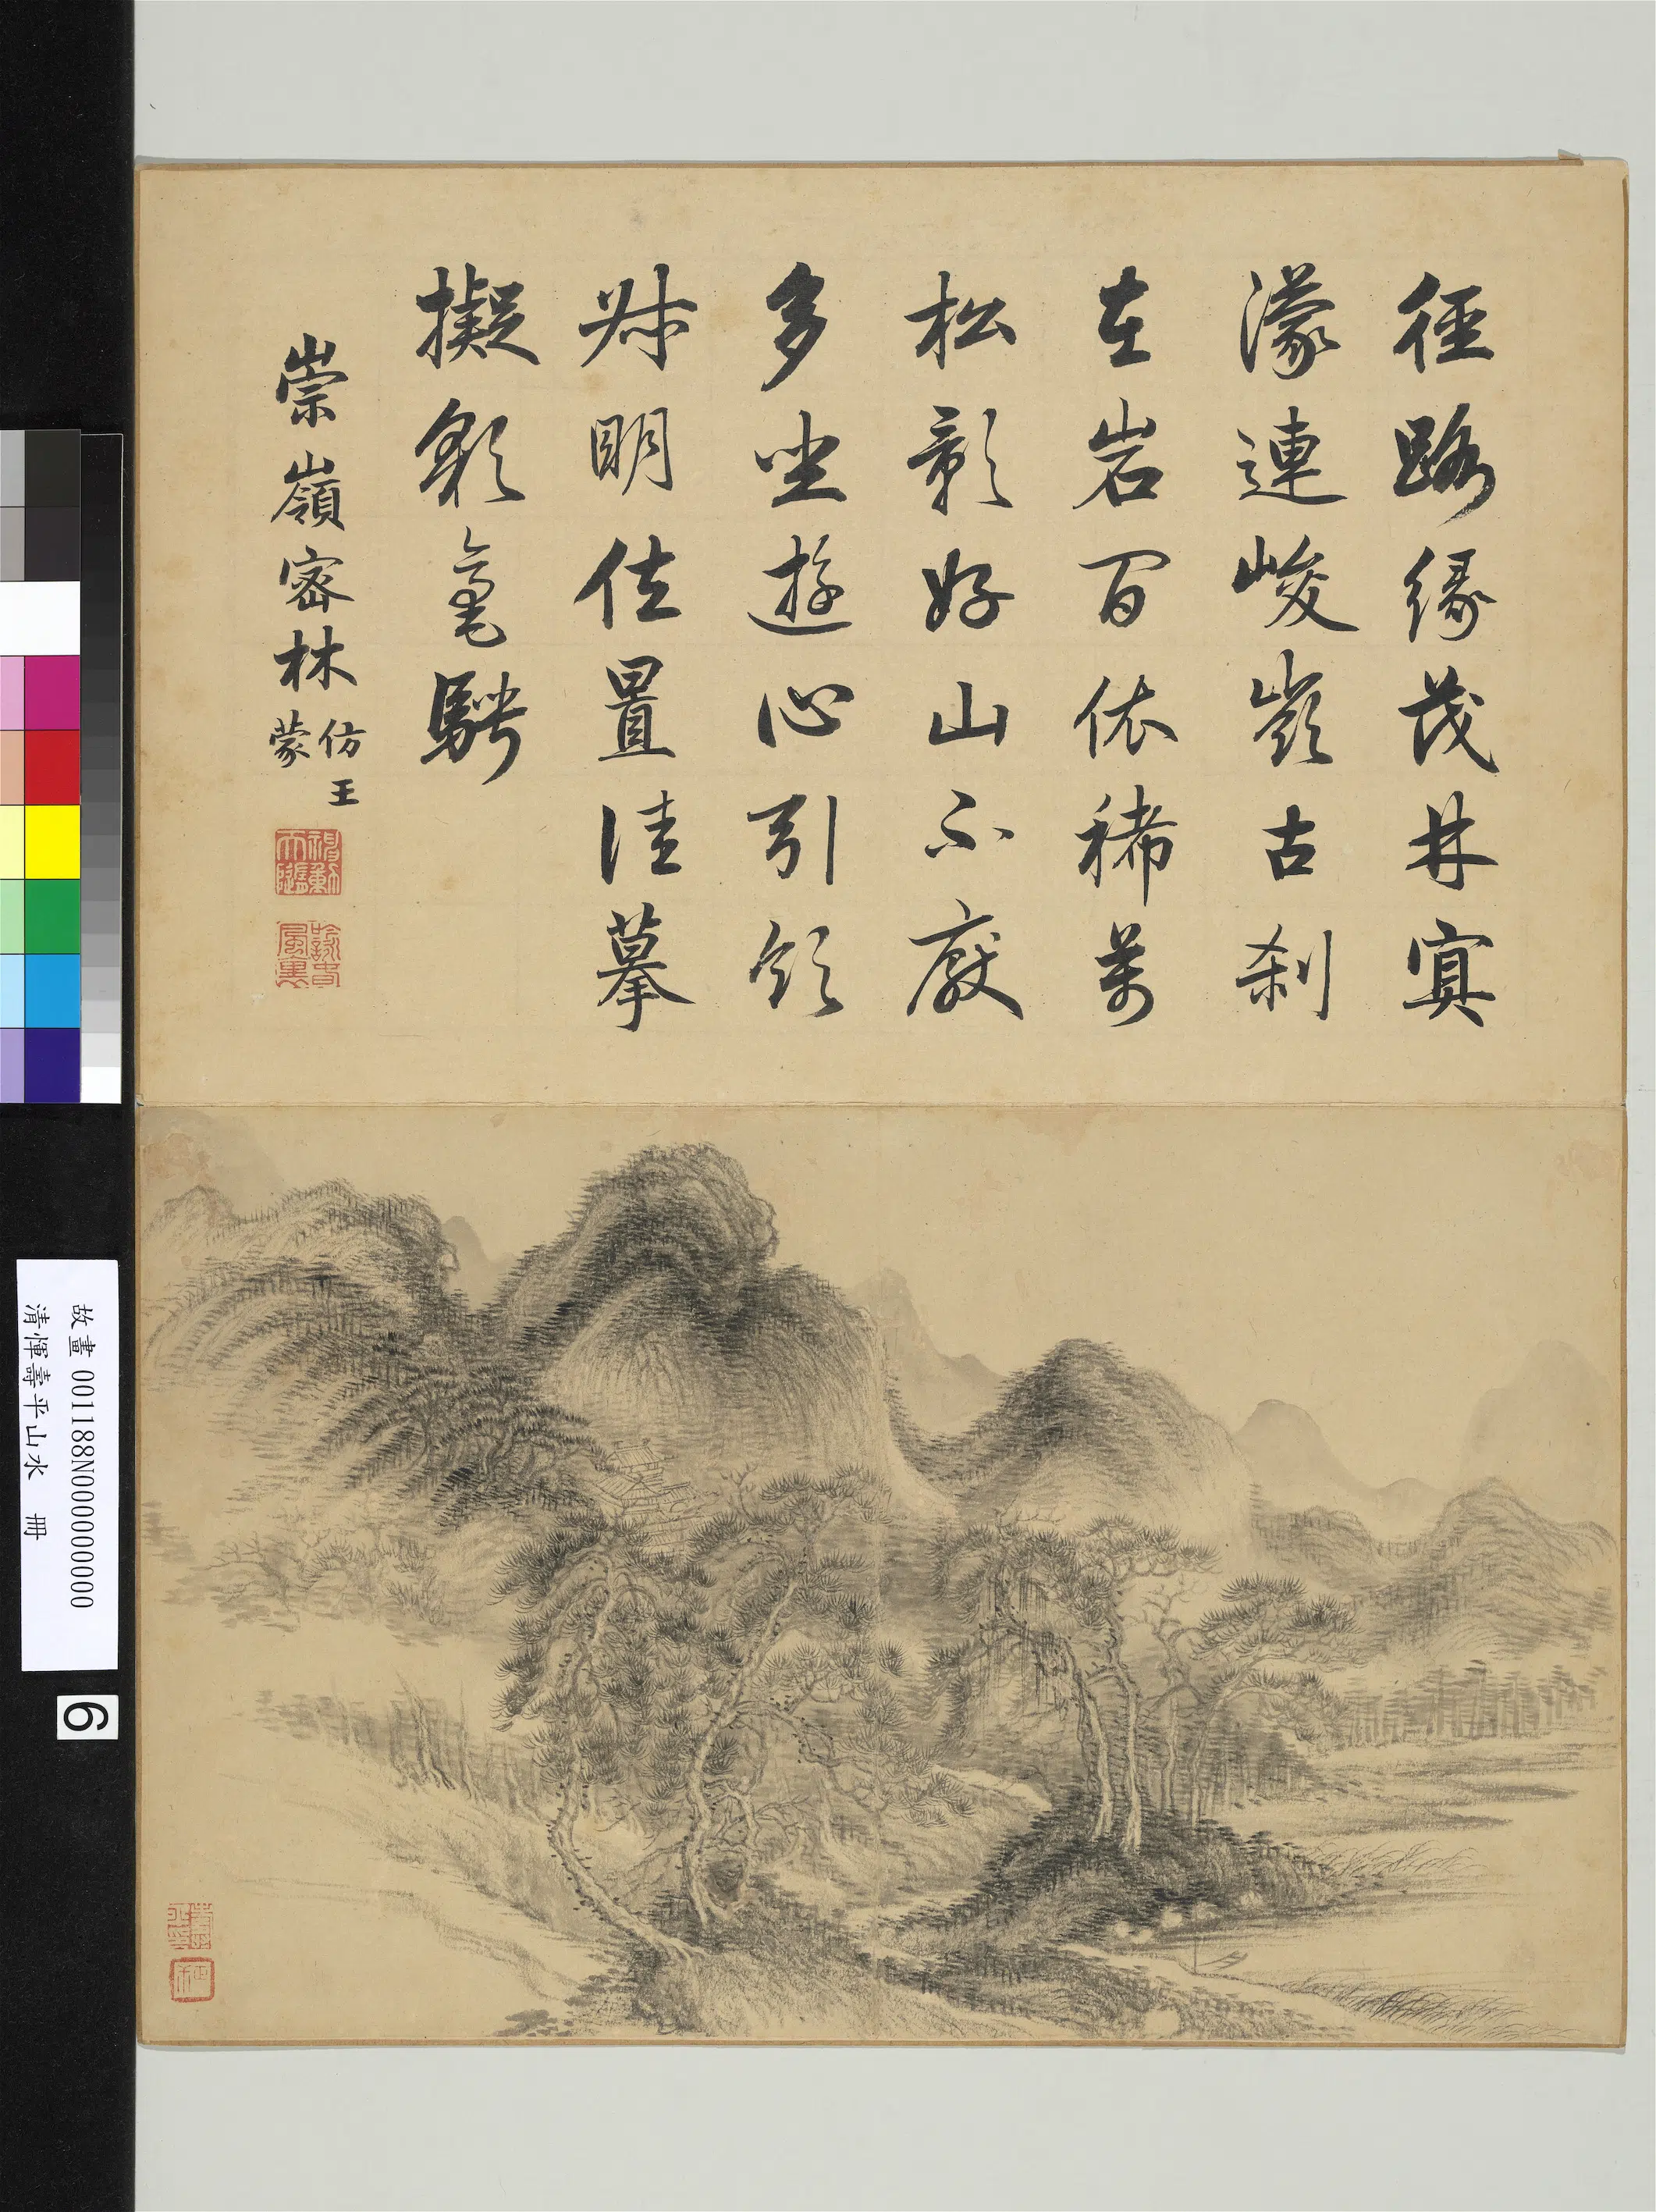 徑路緣茂林冥
濛連峻嶺古刹
在岩間依稀萬
松影好山不厭
多坐遊心引領
叔明位置佳摹
擬歛毫騁
崇嶺密林仿王蒙
故畫 001188N000000000
清惲壽平山水 冊
6